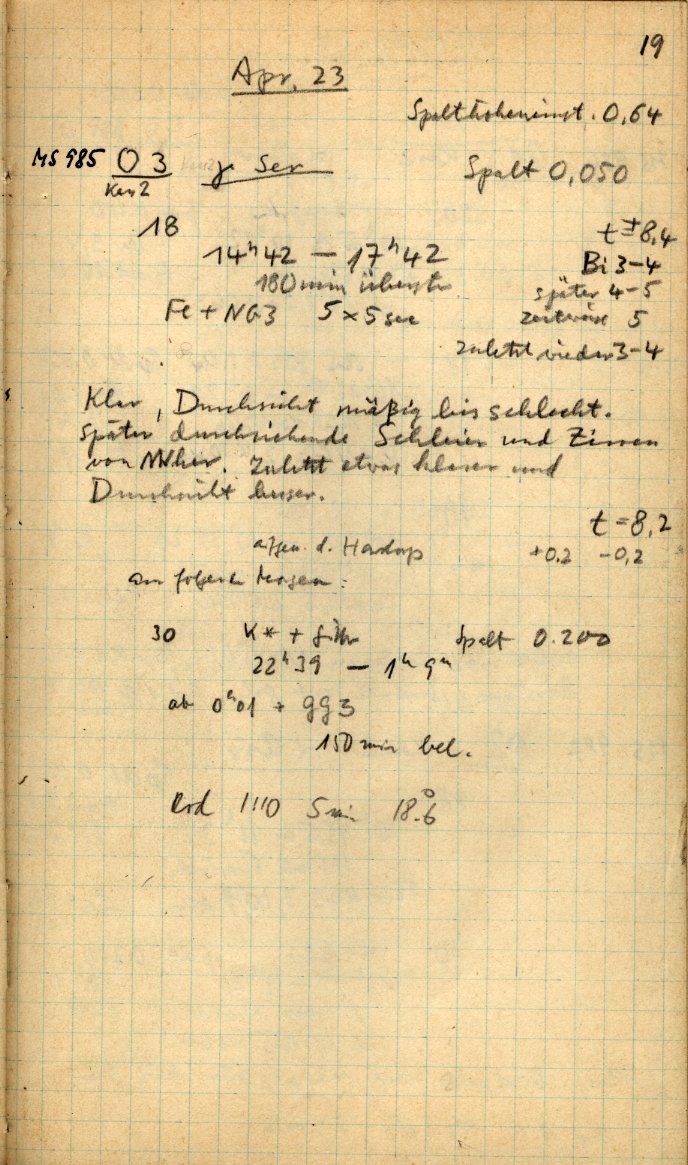 19
Apr. 23
Spalthöheneinst. 0,64
MS 985 O 3 γ Ser Spalt 0,050
Kas 2
18 t = 8,4
14ʰ42 — 17ʰ42 Bi 3-4
180 min später 4-5
Fe + NG3 5×5 sec zeitweise 5
zuletzt wieder 3-4
Klar, Durchsicht mäßig bis schlecht.
Später durchziehende Schleier und Zirren
von NW her. Zuletzt etwas klarer und
Durchsicht besser.
t = 8,2
d. +0.2 -0,2
am folgenden Morgen:
30 K* + Spalt 0.200
22ʰ39 — 1ʰ 9ᵐ
ab 0ʰ01 + GG3
150 min bel.
5 min 18°.6